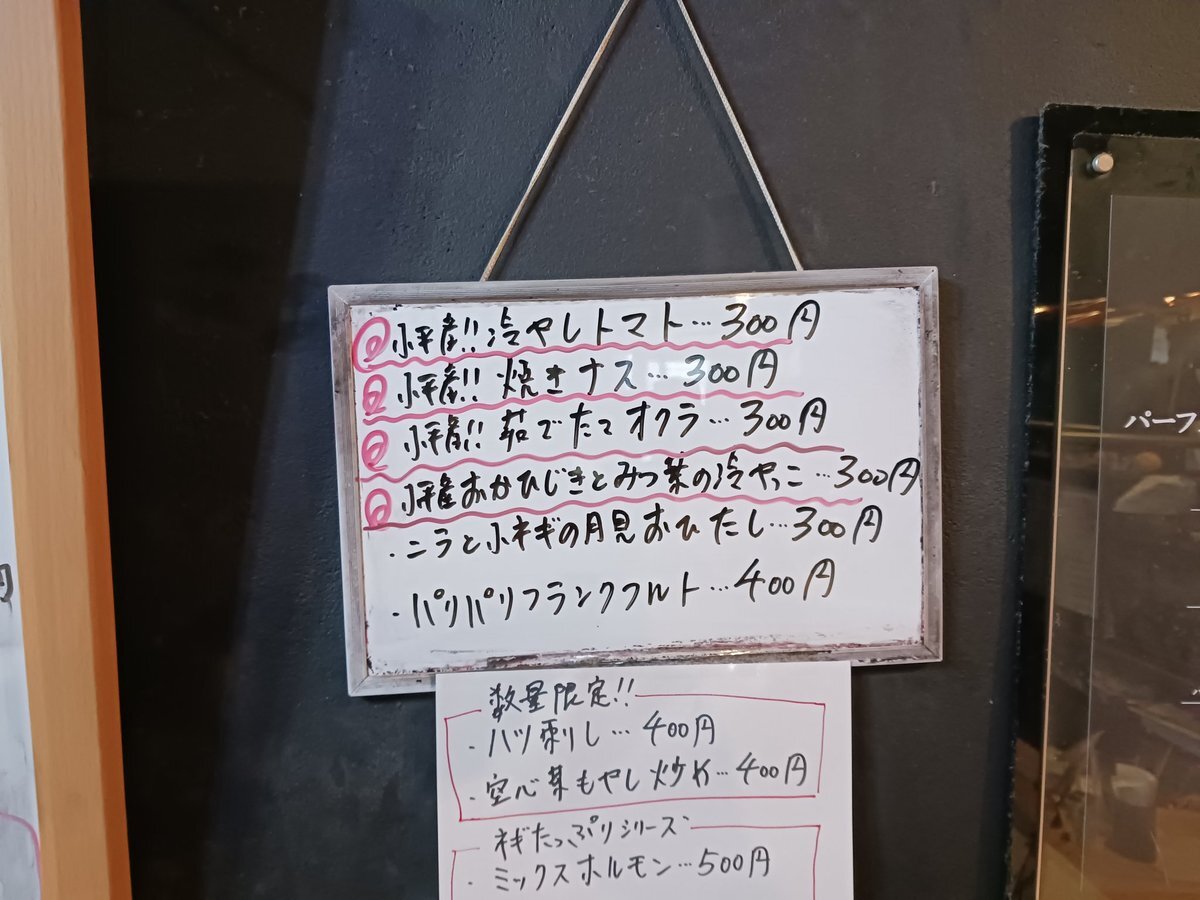 小平産!!冷やしトマト…300円
小平産!!焼きナス…300円
小平産!!茹でたてオクラ…300円
小平産おかひじきとみつ葉の冷やっこ…300円
・ニラと小ネギの月見おひたし…300円
・パリパリフランクフルト…400円
数量限定!!
・ハツ刺し…400円
・空心菜もやし炒め…400円
ネギたっぷりシリーズ
・ミックスホルモン…500円
パーフ
円